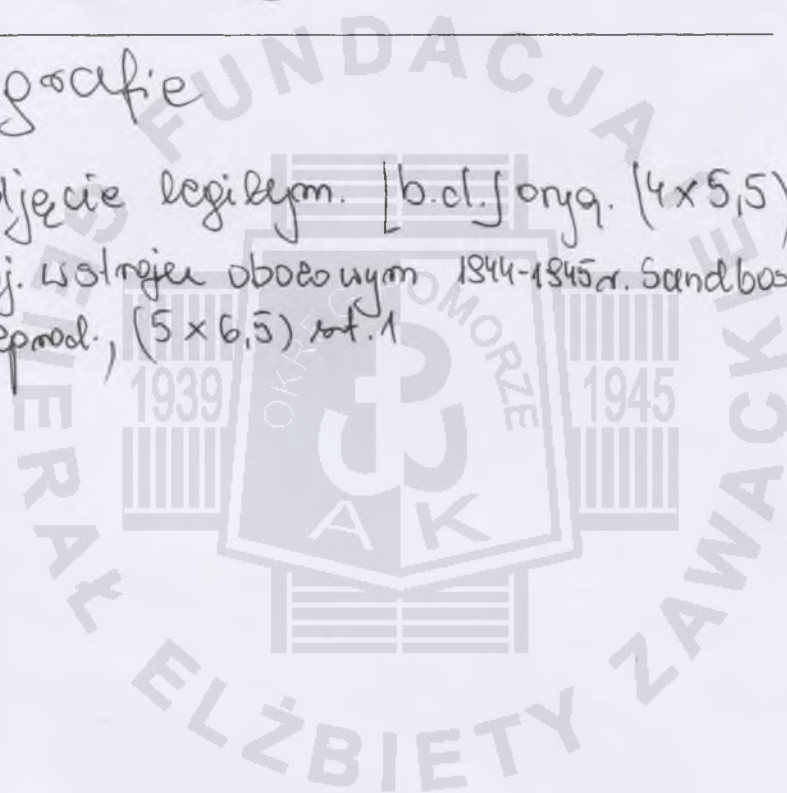 grafie
jęcie legitym. [b.d.] oryg. (4x5,5)
j. w stroju obozowym 1944-1945r. Sandbos
reprod., (5 x 6,5) szt. 1
FUNDACJA
GENERAŁ ELŻBIETY ZAWACKIE
OKRĘG POMORZE
1939
1945
AK